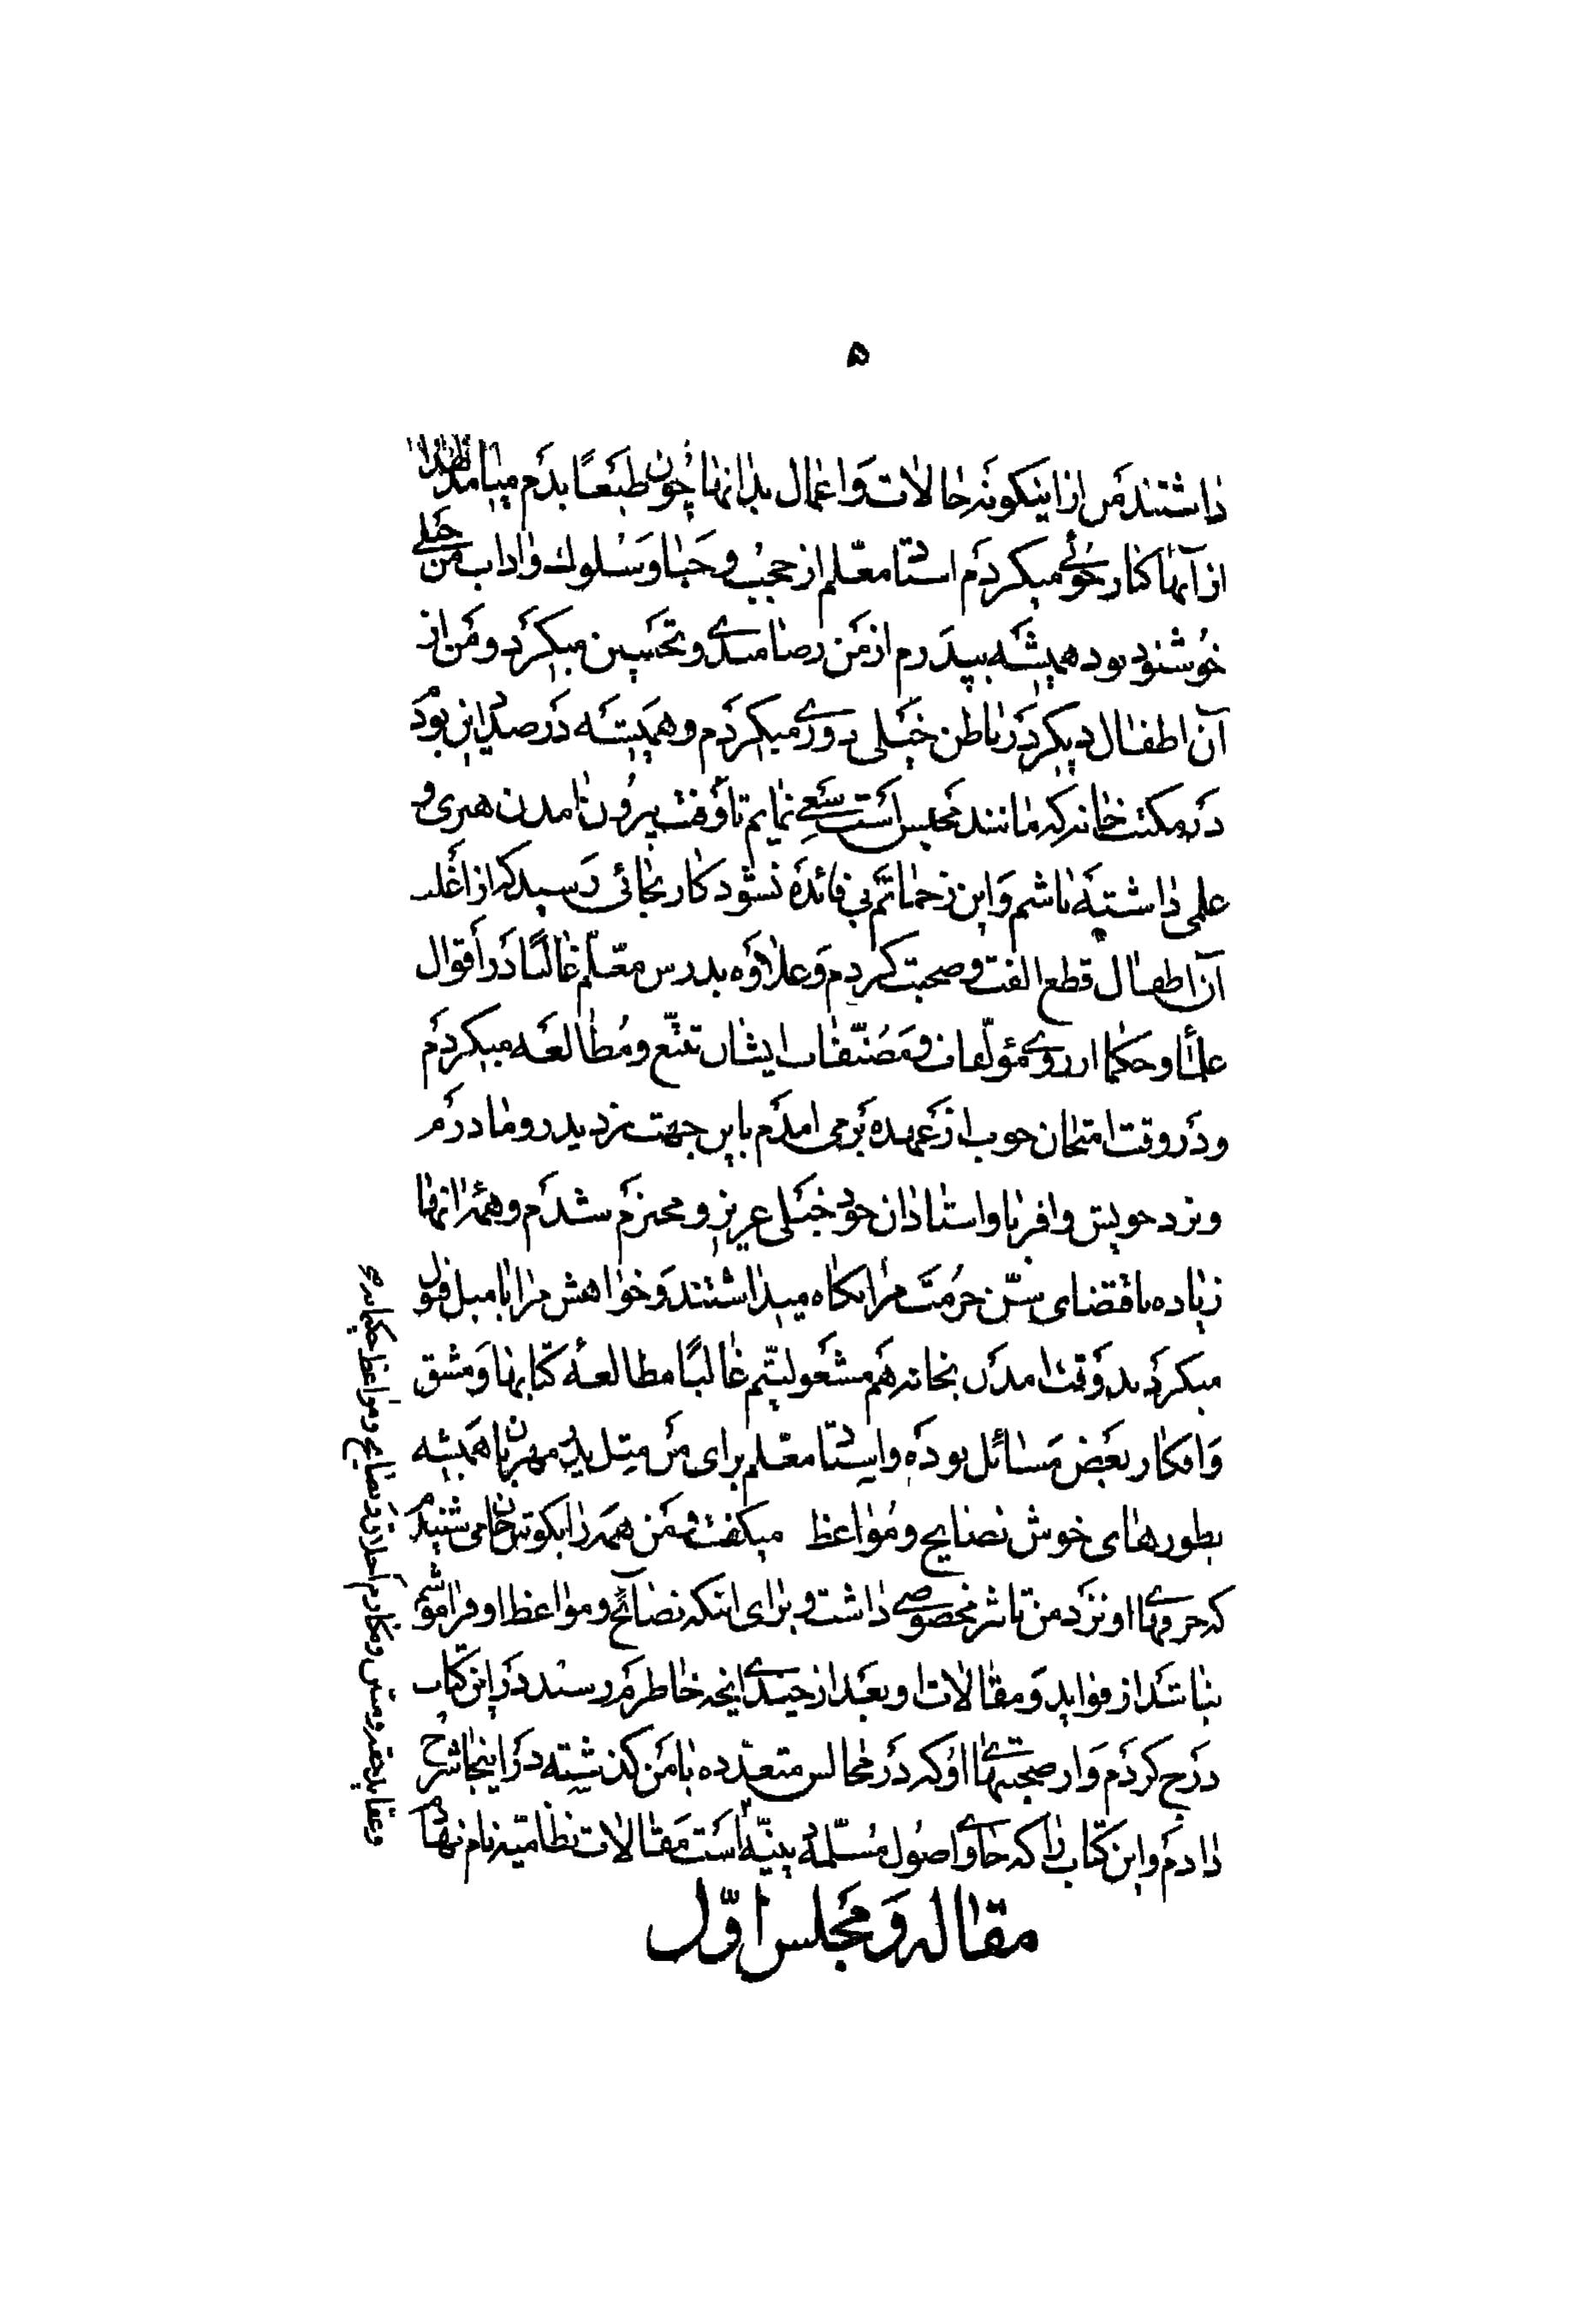 ۵
داشتند من از اینکونه حالات و اعمال بد انها چون طبعًا بدم میامد لهذا
از آنها کناره‌جوئی میکردم استاد معلّم از حجب و حیا و سلوك و اداب من خیلی
خوشنود بود همیشه بپدرم از من رضامندی و تحسین میکرد و من از
آن اطفال دیکر در باطن خیلی دوری میکردم و همیشه در صدد این بودم
در مکتب خانه که مانند محبس است سعی نمایم تا وقت بیرون امدن هنری و
علمی داشته باشم و این زحماتم بی فائده نشود کار بجائی رسید که از اغلب
آن اطفال قطع الفت و صحبت کردم و علاوه بدرس معلّم غالبًا در أقوال
علمأ و حکما از روی مؤلّفات و مصنّفات ایشان تتبّع و مطالعه میکردم
و در وقت امتحان خوب از عهده بر می امدم باین جهت نزد پدر و مادرم
و نزد خویش و اقربا و استادان خود خیلی عزیز و محترم شدم و همۀ انها
زیاده باقتضای سنّ حرمت مرا نکاه میداشتند و خواهش مرا با میل قبول
میکردند وقت امدن بخانه هم مشغولیتم غالبًا مطالعۀ کتابها و مشق
و افکار بعض مسائل بوده و استاد معلّم برای من مثل پدر مهربان همیشه
بطورهای خوش نصایح و مواعظ میکفت من همه را بکوش جان می شنیدم
که حرفهای او نزد من تاثیر مخصوصی داشت و برای انکه نصائح و مواعظ او فراموشم
نباشد از فواید و مقالات او بعد از چندی انچه خاطرم رسند در این کتاب
درج کردم و از صحبتهای او که در مجالس متعدّده با من کذشته در اینجا شرح
دادم و این کتاب را که حاوی اصول مسلّمۀ دینیّه است مقالات نظامیّه نام نهادم
مقاله و مجلس اوّل
و عقاید حقه و متن و مکارم اخلاق و نصایح و مواعظ حکیمانه